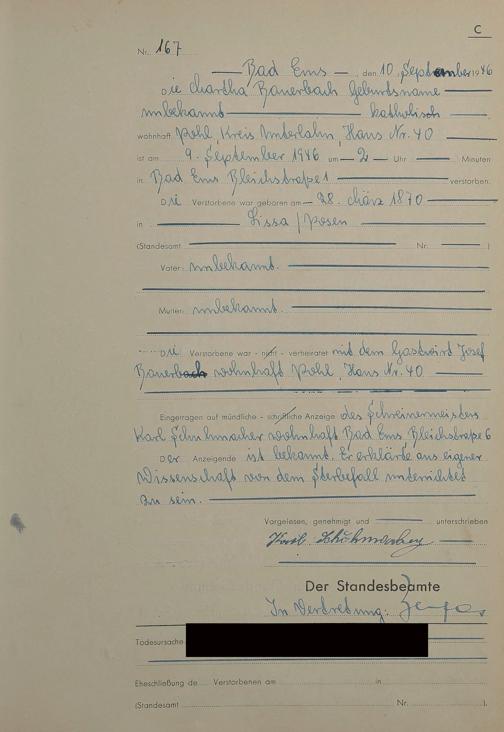 C
Nr. 167
Bad Ems den 10. September 1946
Die Martha Bauerbach Geburtsname
unbekannt katholisch
wohnhaft Pohl, Kreis Unterlahn, Haus Nr. 40
ist am 9. September 1946 um 2 Uhr Minuten
in Bad Ems Bleichstraße 1 verstorben.
Die Verstorbene war geboren am 28. März 1870
in Lissa / Posen
(Standesamt Nr. )
Vater: unbekannt.
Mutter: unbekannt.
Die Verstorbene war - nicht - verheiratet mit dem Gastwirt Josef
Bauerbach wohnhaft Pohl, Haus Nr. 40
Eingetragen auf mündliche - schriftliche Anzeige des Schreinermeisters
Karl Schuhmacher wohnhaft Bad Ems, Bleichstraße 6
Der Anzeigende ist bekannt. Er erklärte aus eigener
Wissenschaft von dem Sterbefall unterrichtet
zu sein.
Vorgelesen, genehmigt und unterschrieben
Karl Schuhmacher
Der Standesbeamte
In Vertretung:
Todesursache
Eheschließung de Verstorbenen am in
(Standesamt Nr. ).